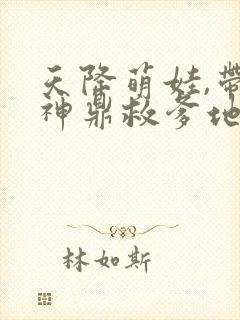 天降萌娃,带
神鼎救爹地
林如斯